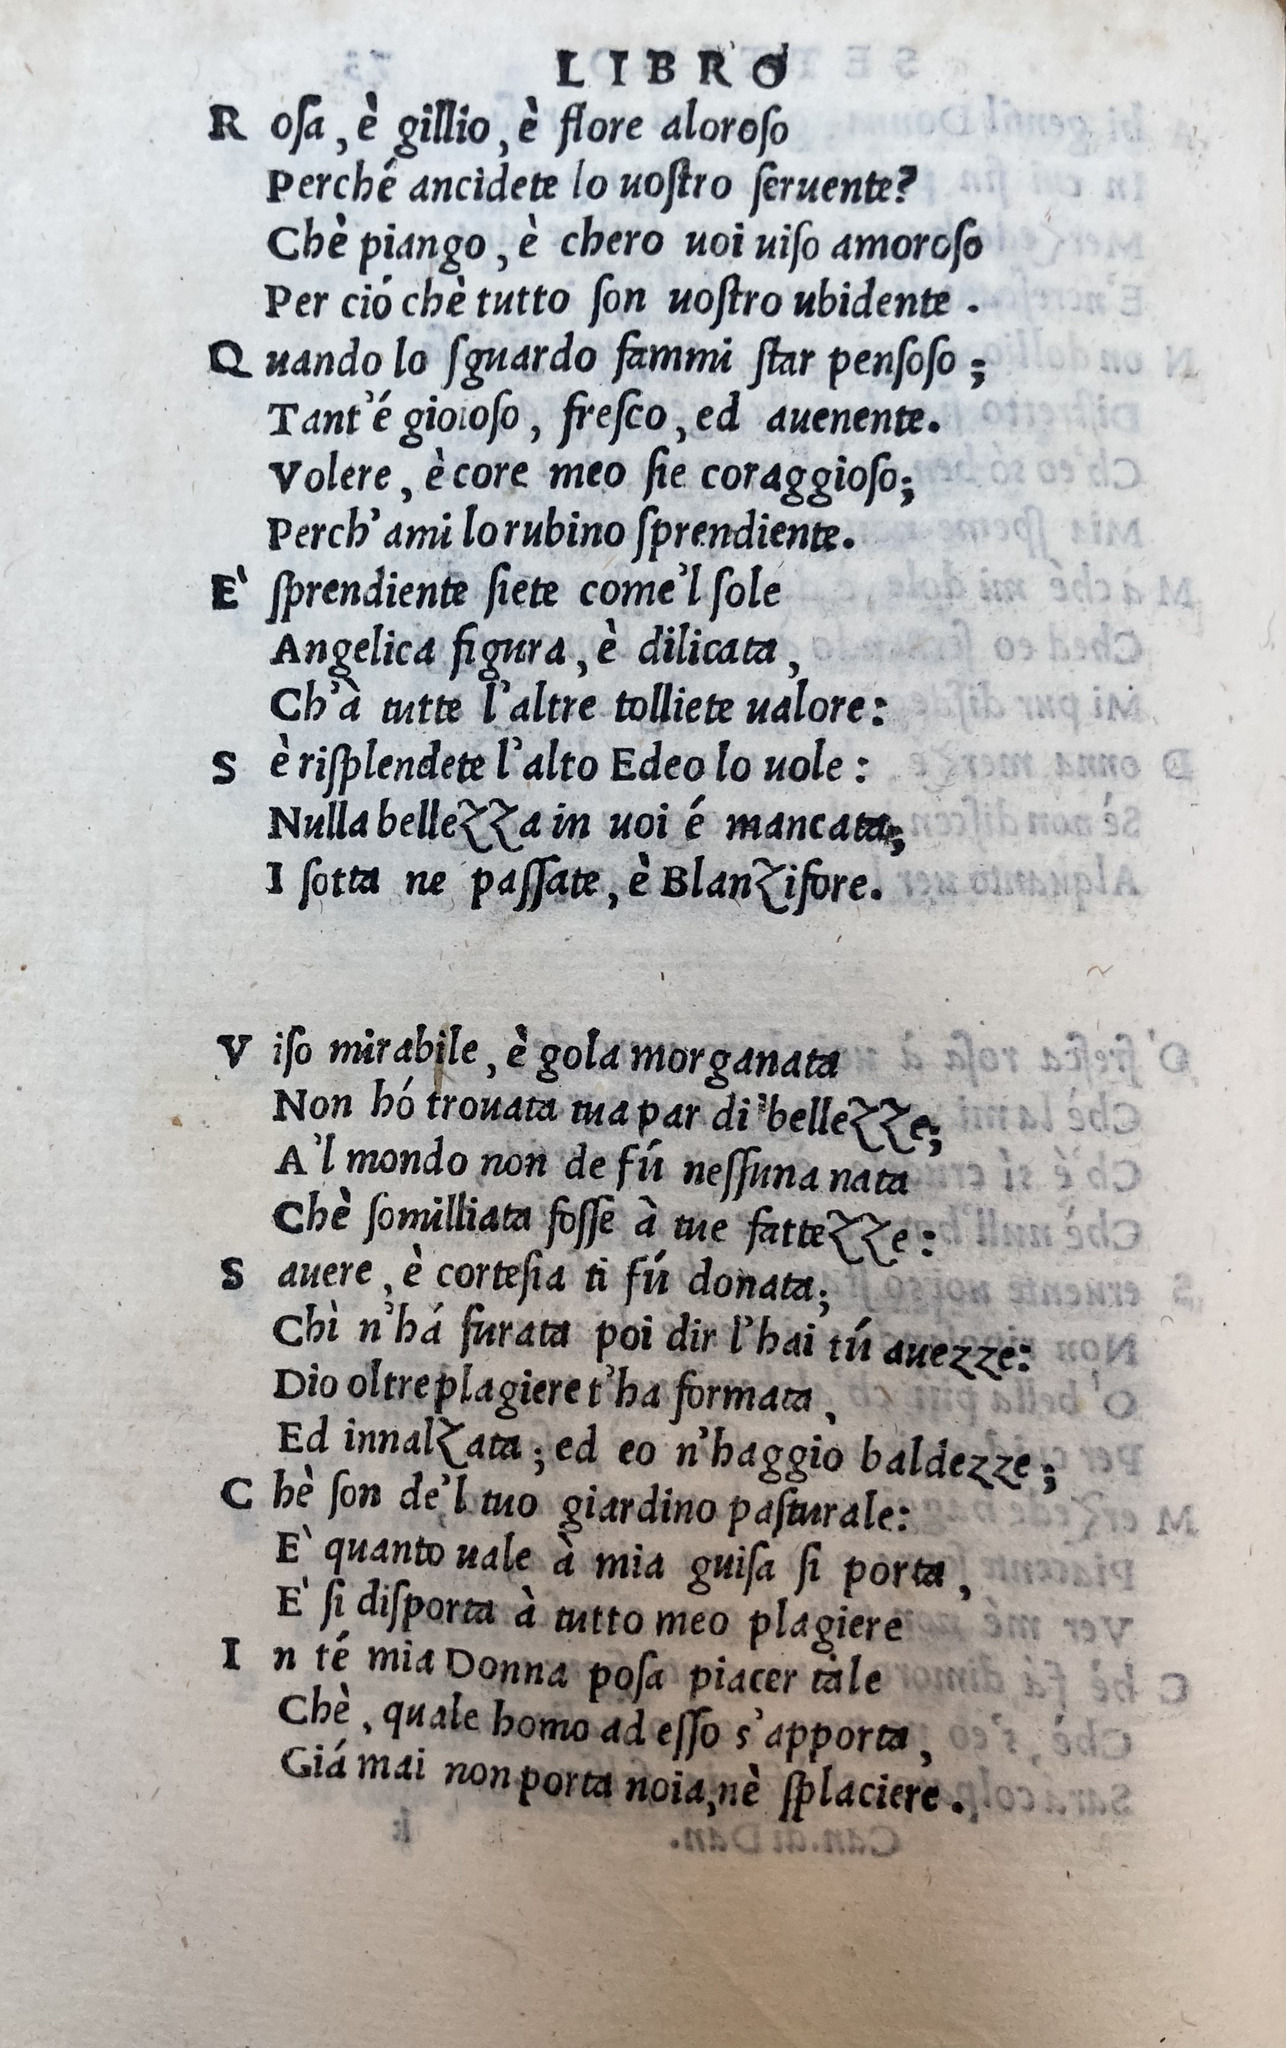 LIBRO
Rosa, è gillio, è flore aloroso
Perché ancidete lo uostro seruente?
Chè piango, è chero uoi uiso amoroso
Per ció chè tutto son uostro ubidente.
Quando lo sguardo fammi star pensoso;
Tant'é gioioso, fresco, ed auenente.
Volere, è core meo sie coraggioso;
Perch'ami lo rubino sprendiente.
E' sprendiente siete come'l sole
Angelica figura, è dilicata,
Ch'à tutte l'altre tolliete ualore:
Sè risplendete l'alto Edeo lo uole:
Nulla bellezza in uoi é mancata;
Isotta ne passate, è Blanzifore.
Viso mirabile, è gola morganata
Non hó trouata tua par di bellezze;
A'l mondo non de fú nessuna nata
Chè somilliata fosse à tue fattezze:
Sauere, è cortesia ti fú donata;
Chì n'há furata poi dir l'hai tú auezze:
Dio oltre plagiere t'ha formata,
Ed innalzata; ed eo n'haggio baldezze;
Chè son de'l tuo giardino pasturale:
E' quanto uale à mia guisa si porta,
E' si disporta à tutto meo plagiere
In té mia Donna posa piacer tàle
Chè, quale homo ad esso s'apporta,
Giá mai non porta noia, nè splaciere.